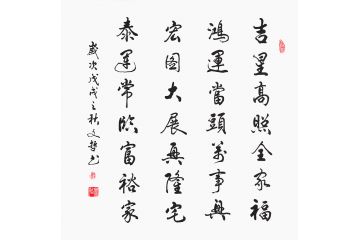 吉星高照全家福
鴻運當頭萬事興
宏图大展興隆宅
泰運常臨富裕家
歲次戊戌之秋文哲書